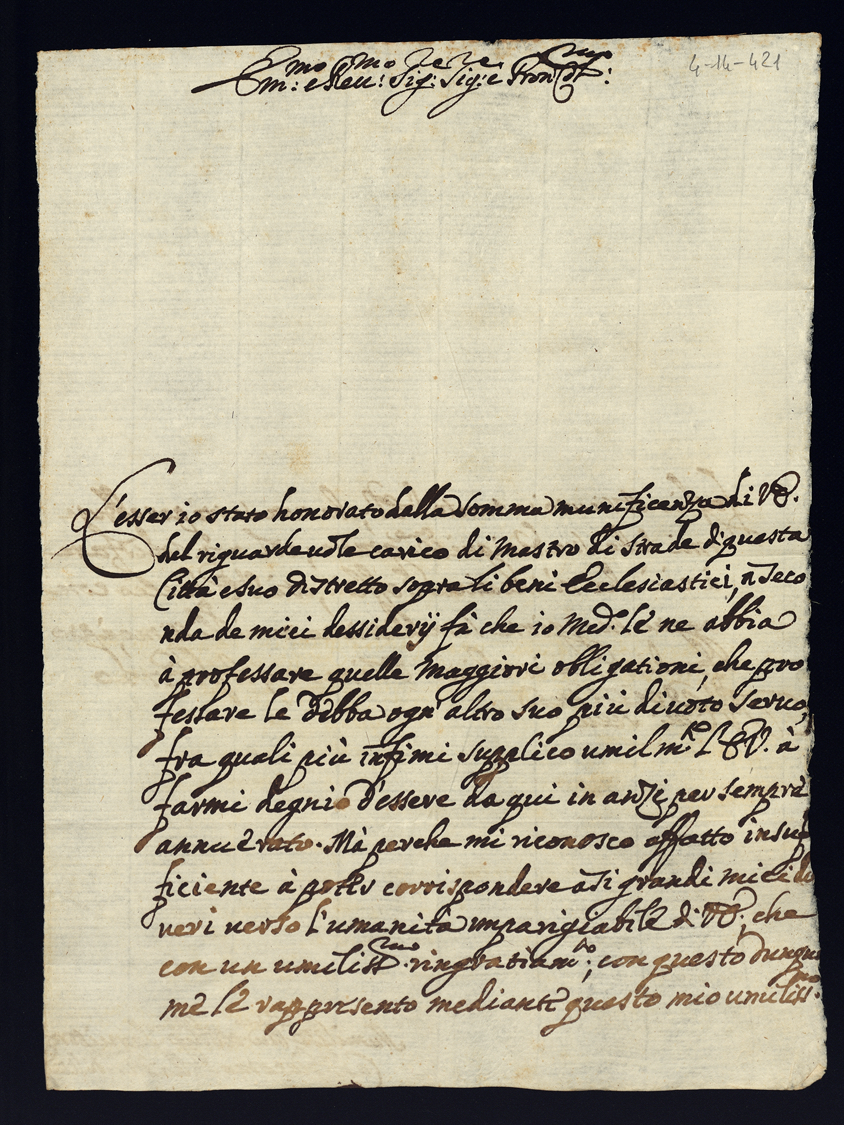 Em:mo e Reu:mo Sig:re Sig:re e Pron Col:mo
4-14-421
L'esser io stato honorato dalla somma munificenza di VE.
del riguardeuole carico di Mastro di strade di questa
Città e suo distretto sopra li beni Ecclesiastici, ñ Seco
nda de miei dessiderÿ fà che io Med.º le ne abbia
à professare quelle Maggiori obligationi, che pro
fessare le debba ogn' altro suo più diuoto seruo,
fra quali più infimi supplico umilm.te l'EV. à
farmi degnio d'essere da qui in anzi per sempre
annuerato. Mà perche mi riconosco affatto insuf
ficiente à poter corrispondere à si grandi miei do
ueri uerso l'umanità imparigiabile di VE, che
con un umiliss.mo ringratiam.to, con questo dunque
me le rappresento mediante questo mio umiliss.mo